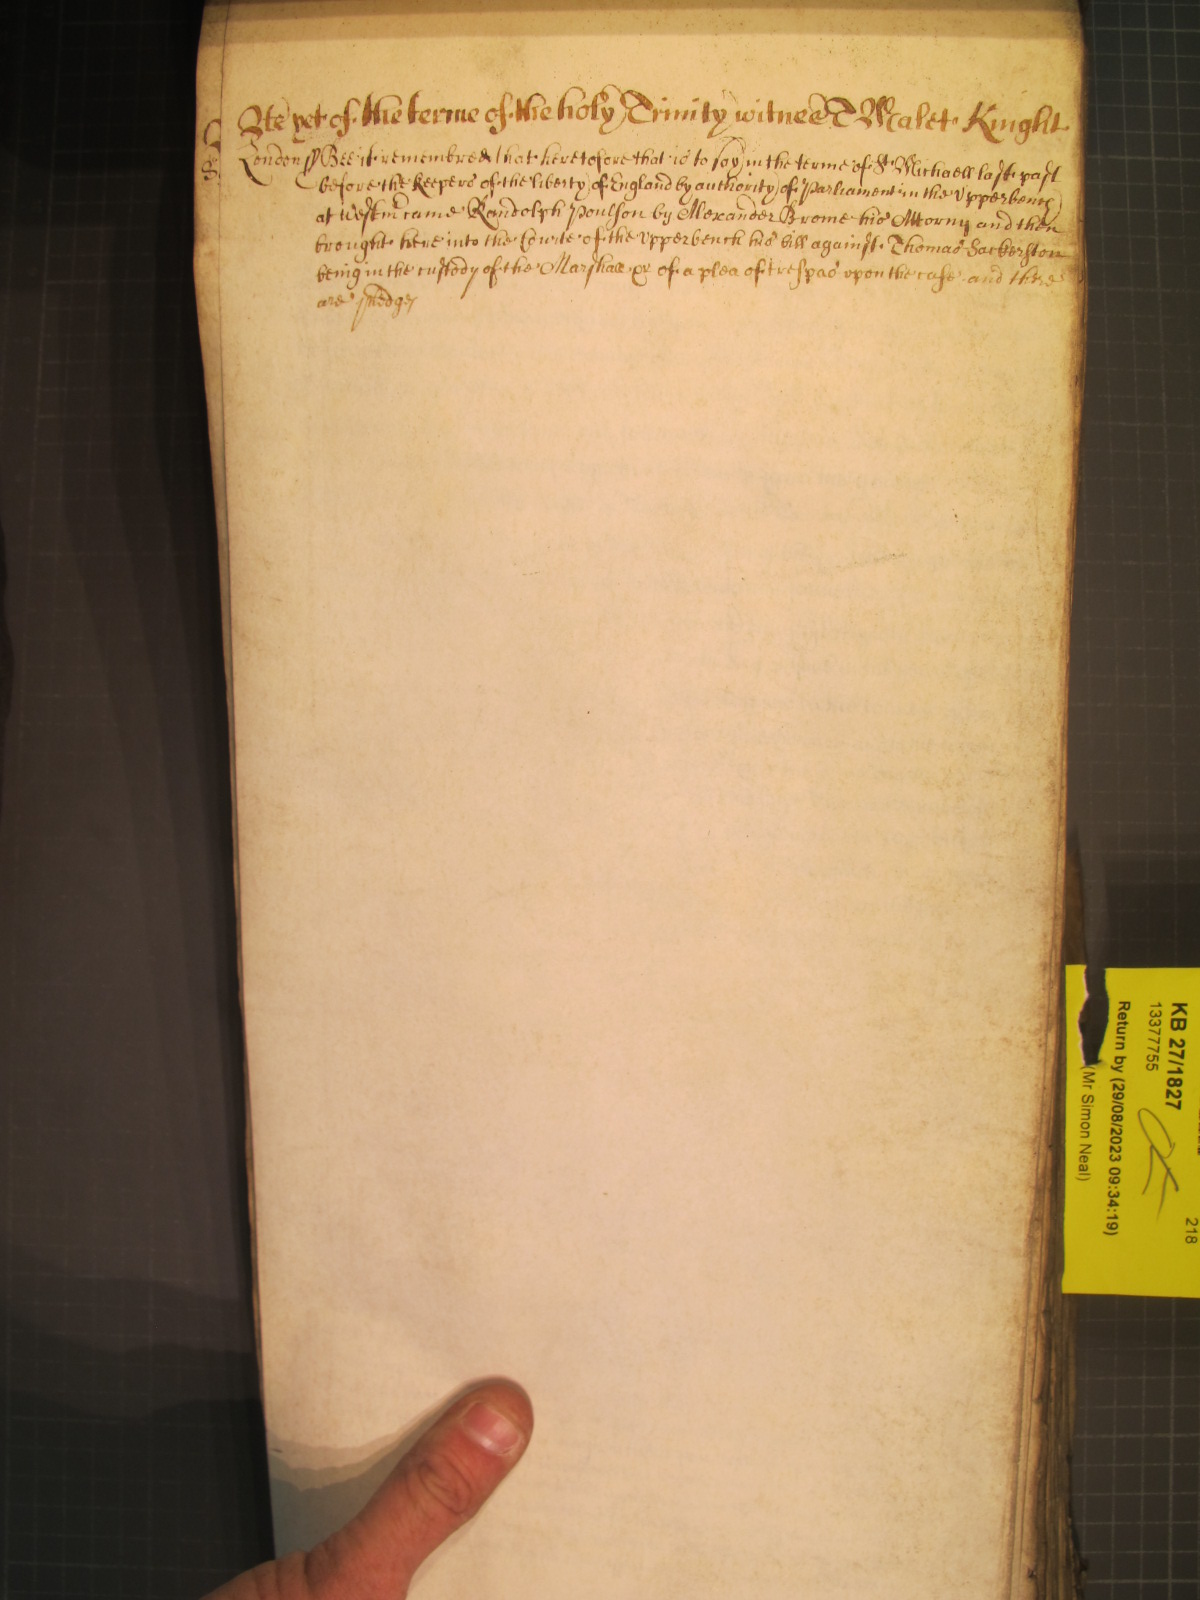 As yet of the terme of the holy Trinity witnes T Malet Knight
London ss Bee it remembred that heretofore that is to say in the terme of St Michaell last past
before the keepers of the liberty of England by authority of Parliament in the Upperbench
at Westmr came Randolph Poulson by Alexander Brome his Attorny and then
brought here into the Courte of the upperbench his bill against Thomas Sackerston
being in the custody of the Marshall &c of a plea of trespas upon the case and there
are pledges
KB 27/1827
13377755
Return by (29/08/2023 09:34:19)
(Mr Simon Neal)
218